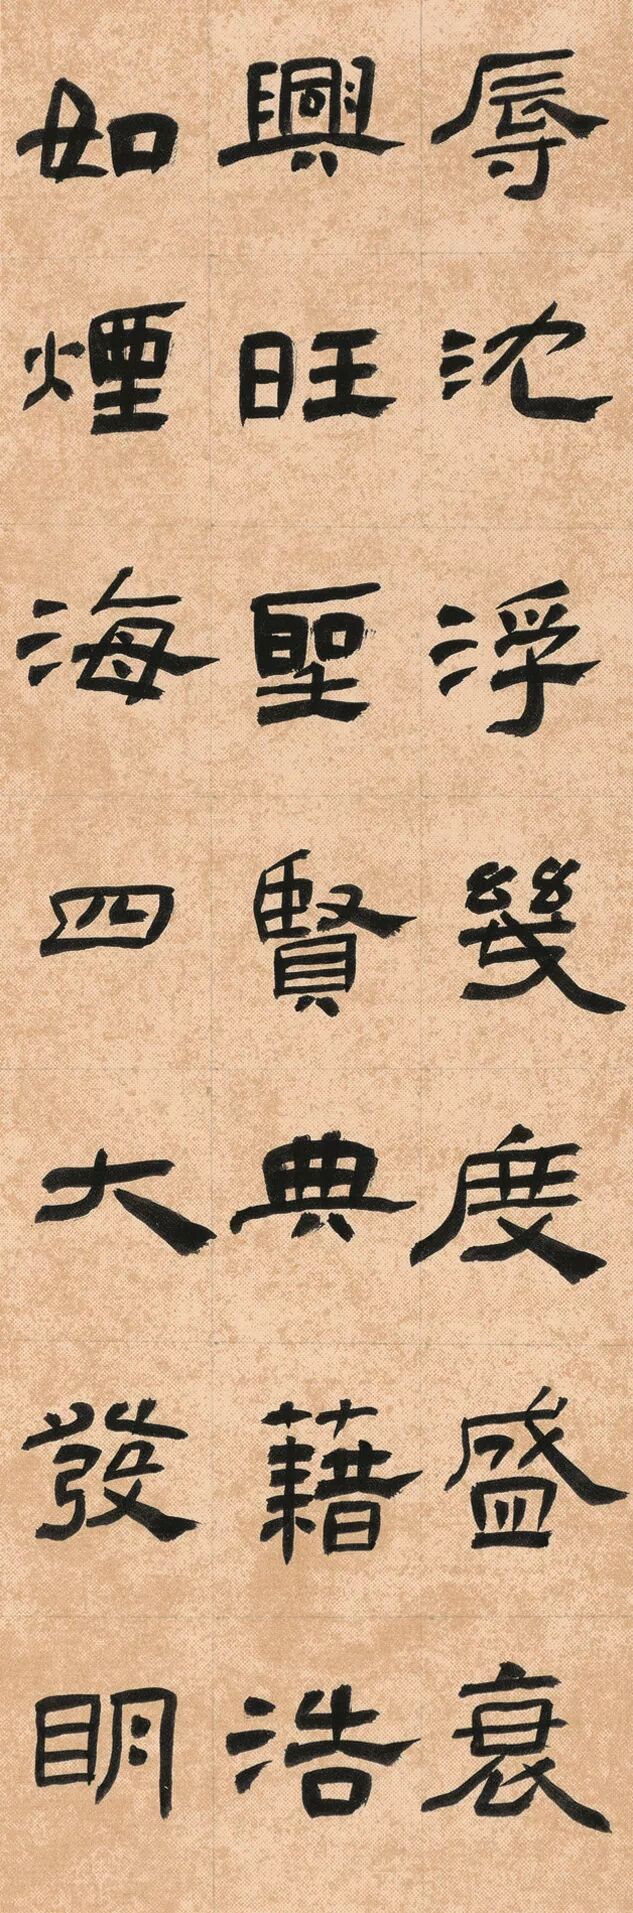 辱沈浮幾度盛衰
興旺聖賢典藉浩
如煙海四大發明